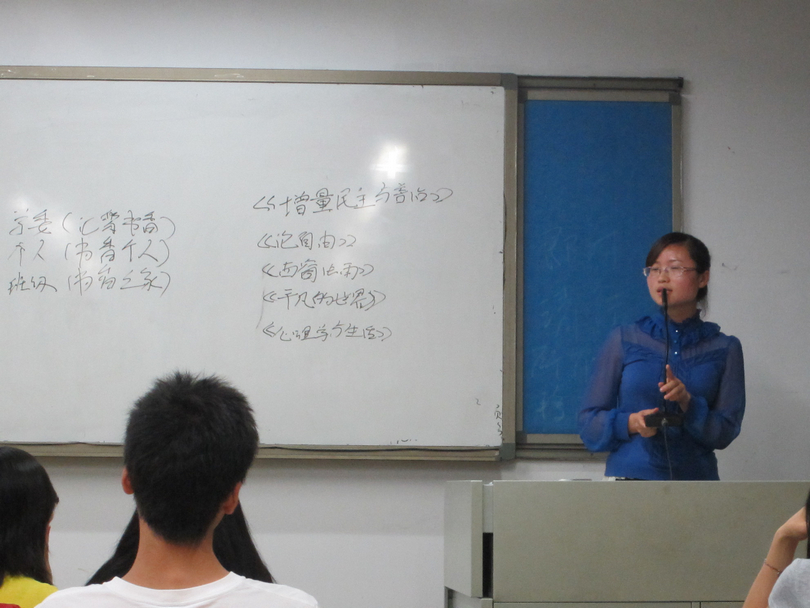 学委（心梁书香）
个人（书香个人）
班级（书香之家）
《增量民主与善治》
《论自由》
《西窗法雨》
《平凡的世界》
《心理学与生活》